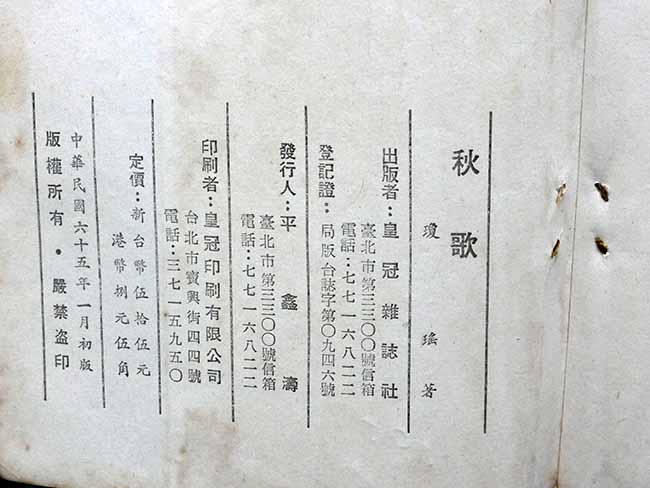 秋歌
瓊瑤著
出版者：皇冠雜誌社
臺北市第三三〇〇號信箱
電話：七七一六八二二
登記證：局版台誌字第〇九四六號
發行人：平鑫濤
臺北市第三三〇〇號信箱
電話：七七一六八二二
印刷者：皇冠印刷有限公司
台北市寶興街四四號
電話：三七一五九五〇
定價：新台幣伍拾伍元
港幣捌元伍角
中華民國六十五年一月初版
版權所有・嚴禁盜印